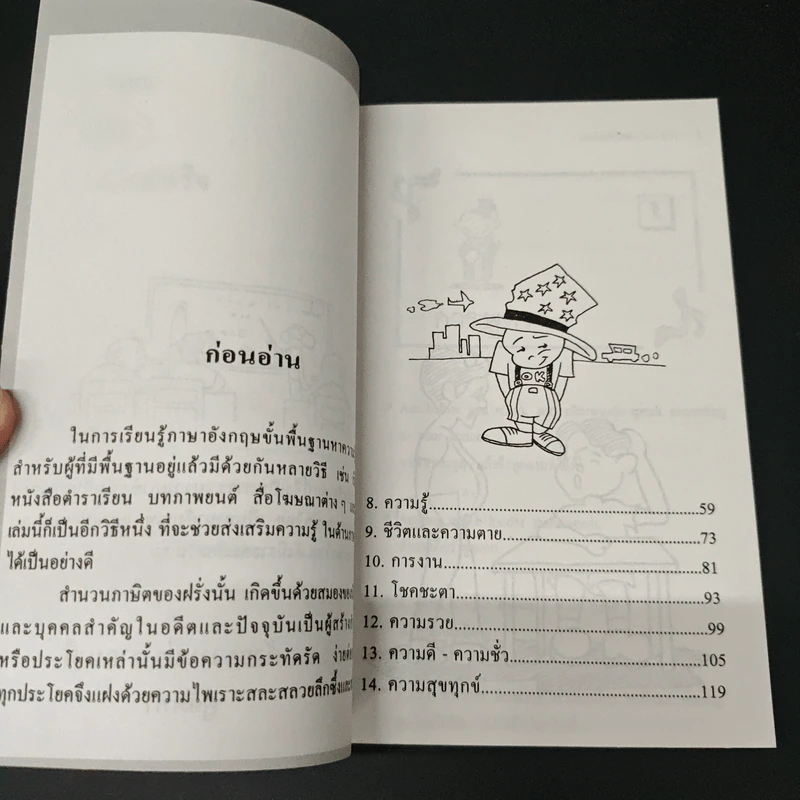 ก่อนอ่าน
ในการเรียนรู้ภาษาอังกฤษขั้นพื้นฐานหาความ
สำหรับผู้ที่มีพื้นฐานอยู่แล้วมีด้วยกันหลายวิธี เช่น
หนังสือตำราเรียน บทภาพยนต์ สื่อโฆษณาต่าง ๆ
เล่มนี้ก็เป็นอีกวิธีหนึ่ง ที่จะช่วยส่งเสริมความรู้ ในด้าน
ได้เป็นอย่างดี
สำนวนภาษิตของฝรั่งนั้น เกิดขึ้นด้วยสมอง
และบุคคลสำคัญในอดีตและปัจจุบันเป็นผู้สร้าง
หรือประโยคเหล่านั้นมีข้อความกระทัดรัด ง่าย
ทุกประโยคจึงแฝงด้วยความไพเราะสละสลวยลึกซึ้ง
OK
8. ความรู้..........59
9. ชีวิตและความตาย..........73
10. การงาน..........81
11. โชคชะตา..........93
12. ความรวย..........99
13. ความดี - ความชั่ว..........105
14. ความสุขทุกข์..........119